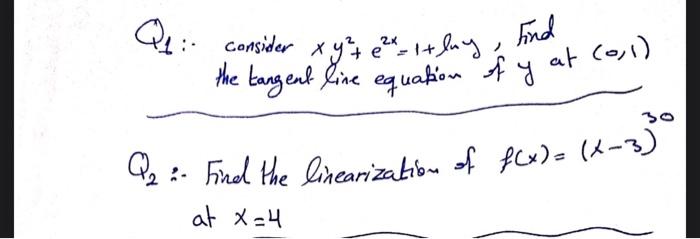 Q1:. consider xy²+e²ˣ=1+lny, Find
the tangent line equation of y at (0,1)
Q2:. Find the linearization of f(x)=(x-3)³⁰
at x=4